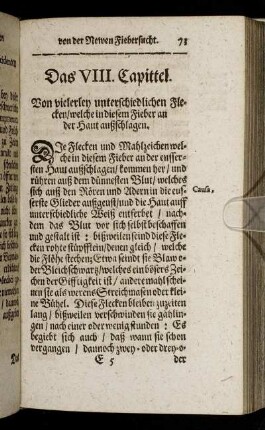 von der Newen Fiebersucht. 73
Das VIII. Capittel.
Von vielerley unterschiedlichen Fle-
cken/welche in diesem Fieber an
der Haut außschlagen.
DIe Flecken und Mahlzeichen wel-
che in diesem Fieber an der eusser-
sten Haut außschlagen/kommen her/ und
rühren auß dem dünnesten Blut/ welches
sich auß den Rören und Adern in die eus-
serste Glieder außgeust/und die Haut auff
unterschiedliche Weiß entferbet / nach-
dem das Blut vor sich selbst beschaffen
und gestalt ist : bißweilen seind diese Fle-
cken rohte stüpfflin/denen gleich / welche
die Flöhe stechen; Etwa seindt sie Blaw o-
der Bleichschwartz/welches ein böses Zei-
chen der Gifftigkeit ist / andere mahl schei-
nen sie als weren es Streichmasen oder klei-
ne Bühel. Diese Flecken bleiben zu zeiten
lang / bißweilen verschwinden sie gählin-
gen / nach einer oder wenig stunden : Es
begiebt sich auch / daß wann sie schon
vergangen / dannoch zwey- oder drey-o-
E 5 der
Causa.